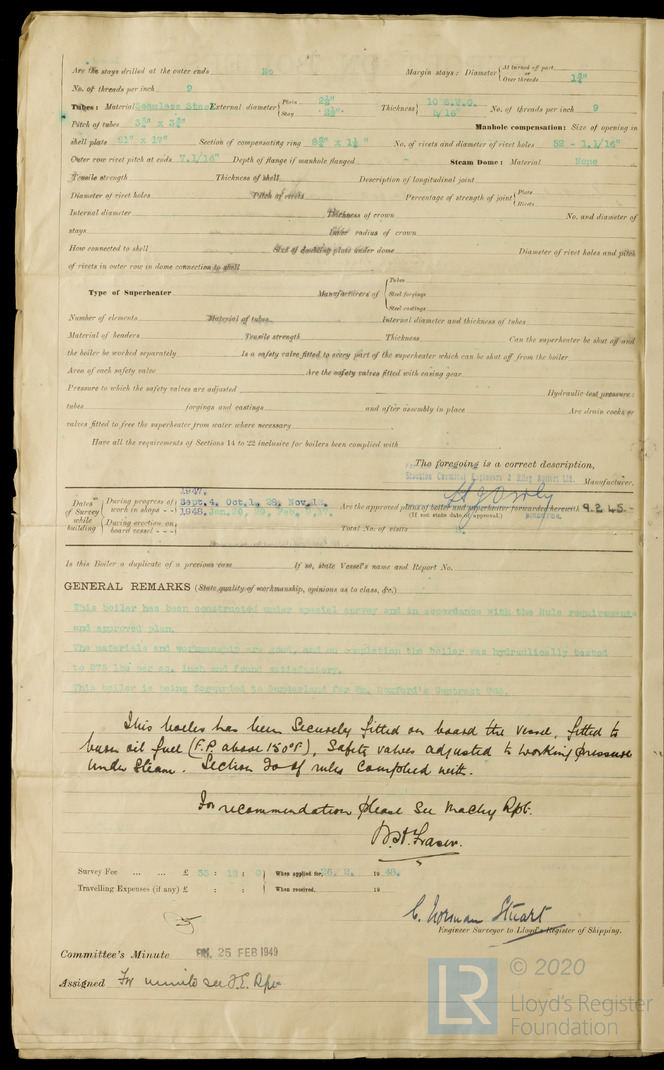 Are the stays drilled at the outer ends No Margin stays: Diameter { At turned off part, or Over threads 1¾"
No. of threads per inch 9
Tubes: Material Seamless Steel External diameter { Plain 2½" Stay 2½" Thickness { 10 S.W.G. 5/16" No. of threads per inch 9
Pitch of tubes 3¾" x 3¾" Manhole compensation: Size of opening in
shell plate 21" x 17" Section of compensating ring x 1½" No. of rivets and diameter of rivet holes 52 - 1.1/16"
Outer row rivet pitch at ends 7.1/16" Depth of flange if manhole flanged Steam Dome: Material None
Tensile strength Thickness of shell Description of longitudinal joint
Diameter of rivet holes Pitch of rivets Percentage of strength of joint { Plate Rivets
Internal diameter Thickness of crown No. and diameter of
stays Inner radius of crown
How connected to shell Size of doubling plate under dome Diameter of rivet holes and pitch
of rivets in outer row in dome connection to shell
Type of Superheater Manufacturers of { Tubes Steel forgings Steel castings
Number of elements Material of tubes Internal diameter and thickness of tubes
Material of headers Tensile strength Thickness Can the superheater be shut off and
the boiler be worked separately Is a safety valve fitted to every part of the superheater which can be shut off from the boiler
Area of each safety valve Are the safety valves fitted with easing gear
Pressure to which the safety valves are adjusted Hydraulic test pressure:
tubes forgings and castings and after assembly in place Are drain cocks or
valves fitted to free the superheater from water where necessary
Have all the requirements of Sections 14 to 22 inclusive for boilers been complied with
The foregoing is a correct description,
Manufacturer.
Dates of Survey while building { During progress of work in shops - - { 1947. Sept. 4, Oct.1, 28, Nov.18, 1948. Jan.20, Feb.
During erection on board vessel - - -
Are the approved plans of boiler and superheater forwarded herewith 9.2.45.
(If not state date of approval.) DIRECTOR.
Total No. of visits
Is this Boiler a duplicate of a previous case If so, state Vessel's name and Report No.
GENERAL REMARKS (State quality of workmanship, opinions as to class, &c.)
This boiler has been constructed under special survey and in accordance with the Rule requirements
and approved plan.
The materials and workmanship are good, and on completion the boiler was hydraulically tested
to 275 lbs per sq. inch and found satisfactory.
This boiler is being forwarded to Sunderland for Wm. Doxford's Contract
This boiler has been securely fitted on board the vessel, fitted to
burn oil fuel (F.P. above 150°F), Safety valves adjusted to working pressure
under steam. Section 20 of rules complied with.
For recommendation please see Machy Rpt.
Fraser.
Survey Fee ... ... £ : : When applied for, 26. 2. 19 48.
Travelling Expenses (if any) £ : : When received, 19
C. Norman Stuart
Engineer Surveyor to Lloyd's Register of Shipping.
Committee's Minute FRI. 25 FEB 1949
Assigned For minute see F.E. Rpt
LR © 2020
Lloyd's Register
Foundation